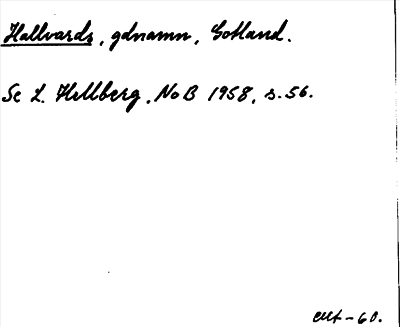 Hallvards, gdnamn, Gotland.
Se L. Hellberg, NoB 1958, s. 56.
-60.